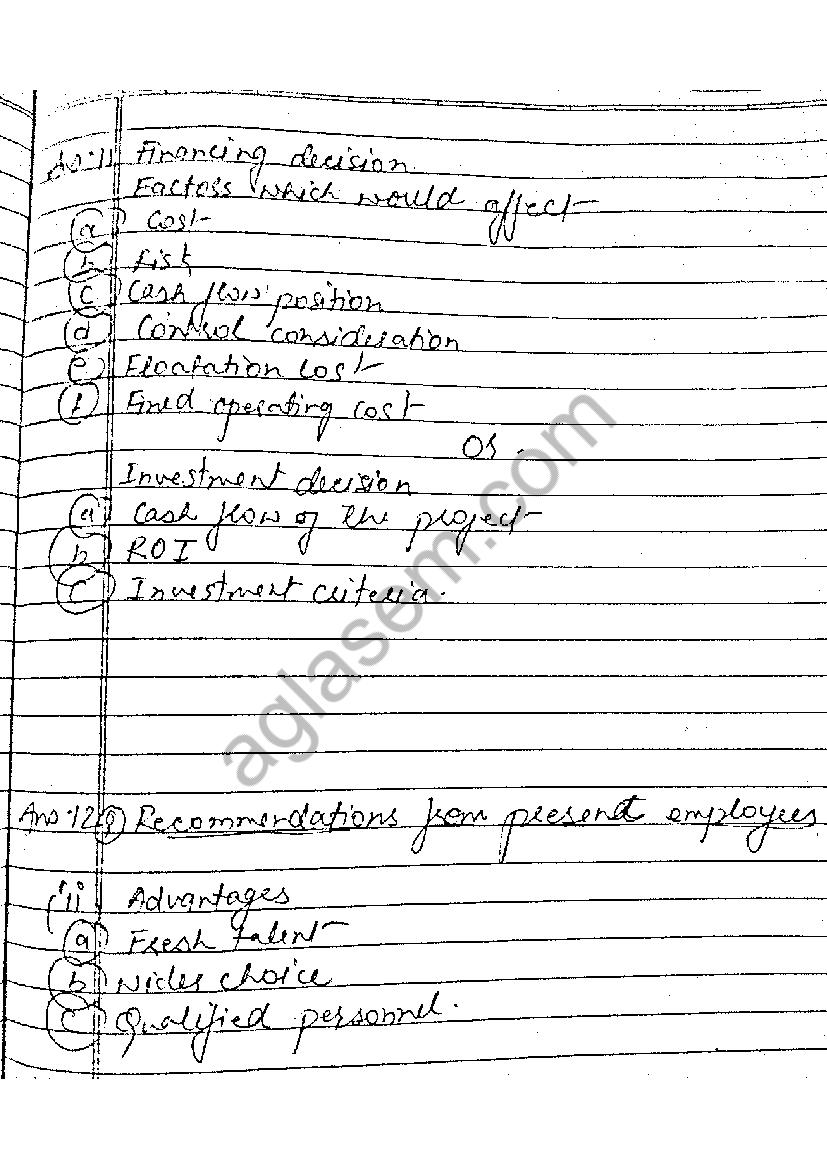 Ans.11 Financing decision
Factors which would affect
(a) Cost
(b) Risk
(c) Cash flow position
(d) Control consideration
(e) Floatation cost
(f) Fixed operating cost
Or.
Investment decision
(a) Cash flow of the project
(b) ROI
(c) Investment criteria.
Ans.12(i) Recommendations from present employees
(ii) Advantages
(a) Fresh talent
(b) Wider choice
(c) Qualified personnel.
aglasem.com